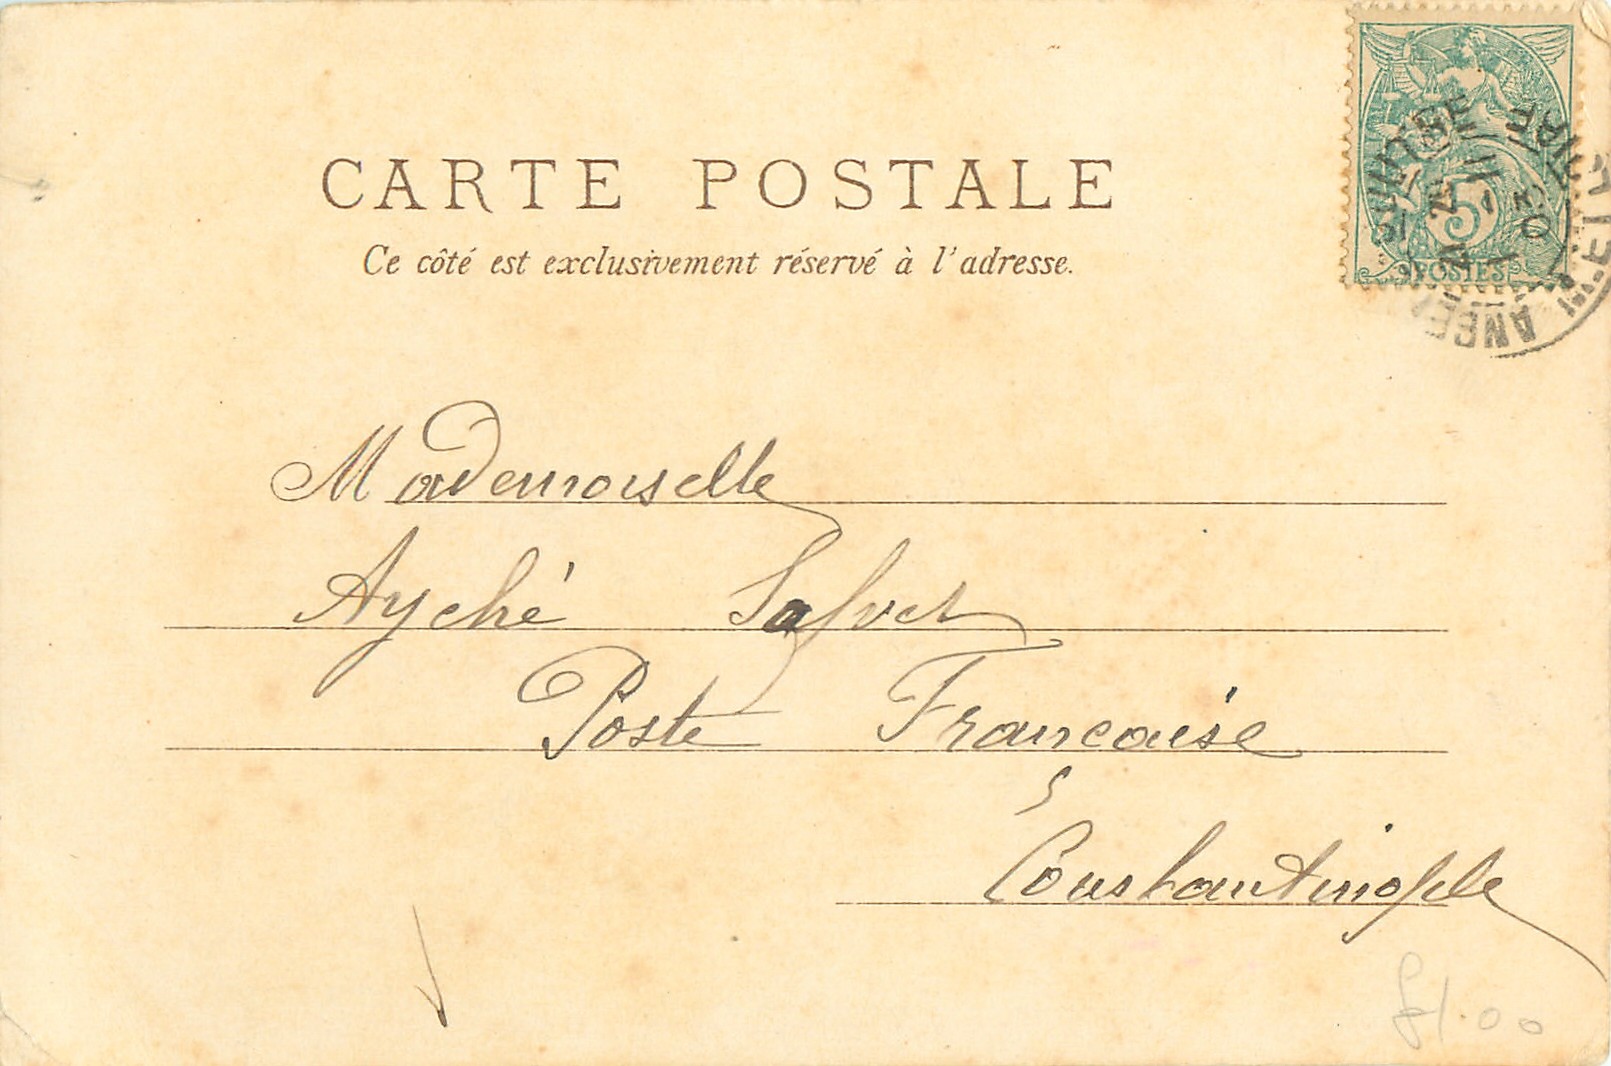 CARTE POSTALE
Ce côté est exclusivement réservé à l'adresse.
5
POSTES
03
Mademoiselle
Ayché Safvet
Poste Française
Constantinople
£1.00